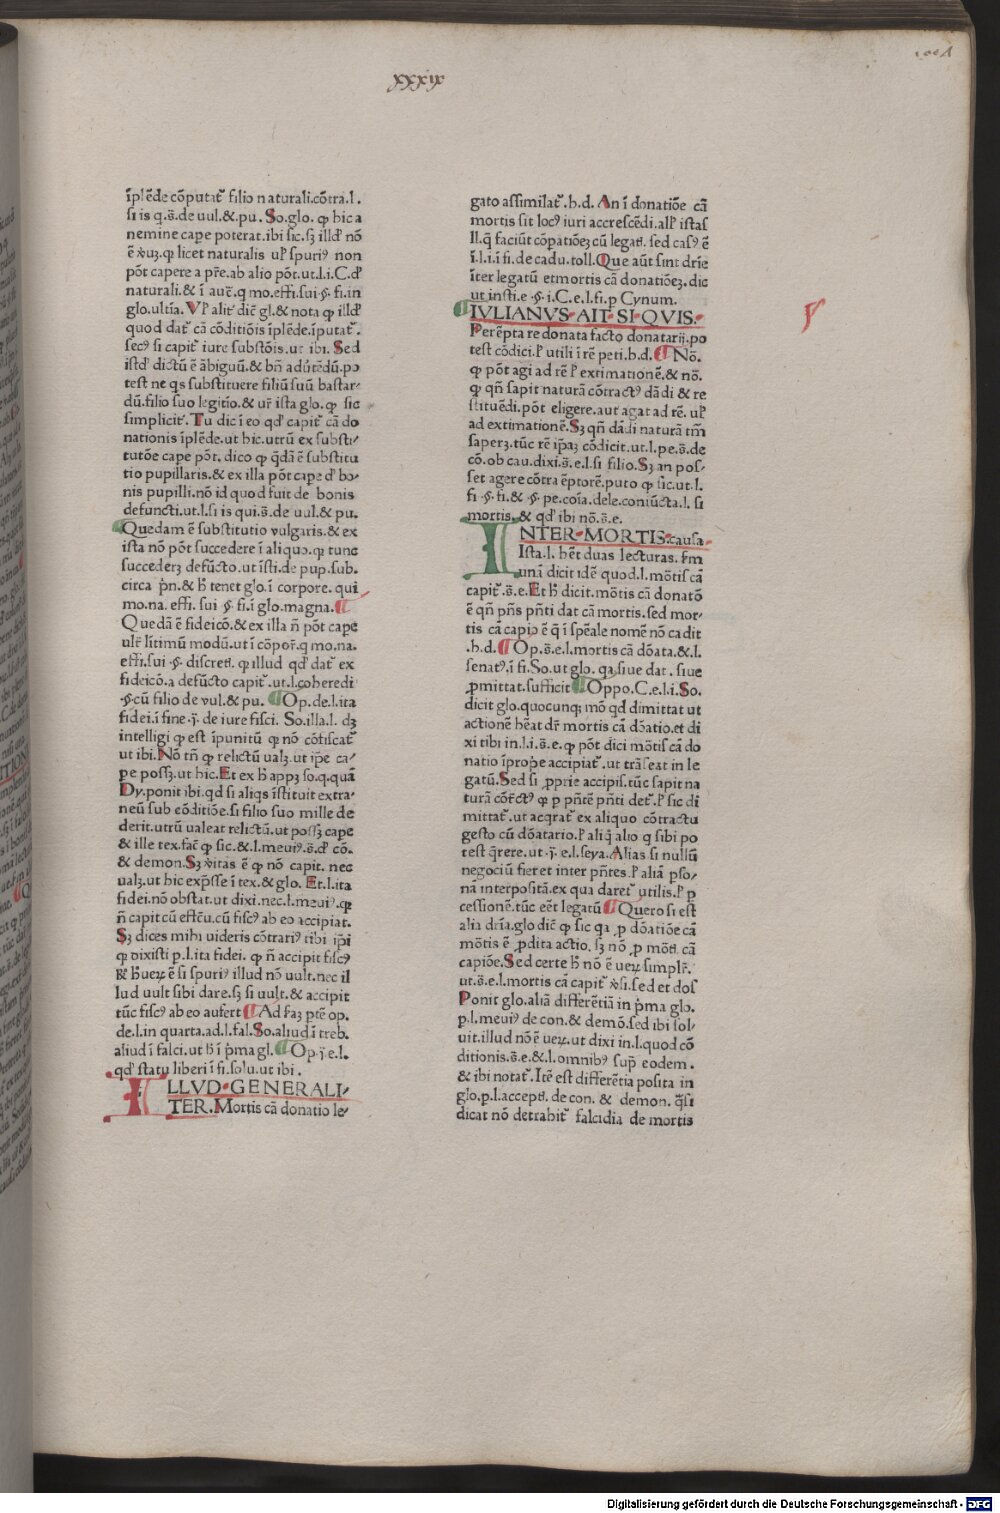 xxxix
 īplēde cōputat᷑ filio naturali.cōtra.l.
si is q.s̄.de uul.&pu. So.glo. ꝙ hic a
nemine cape poterat.ibi sic.sꝫ illd' nō
ē ꝟuꝫ.ꝙ licet naturalis ul' spuriꝰ non
pōt capere a p̄re.ab alio pōt.ut.l.i.C.d'
naturali.& ī auc̄.q mo.effi.sui.§.fi.in
glo.ultīa. Vl' alit᷑ dic̄ gl.& nota ꝙ illd'
quod dat᷑ cā cōditiōis īplēde.īputat᷑.
secꝰ si capit᷑ iure substōis.ut ibi. Sed
istd' dictū ē ābiguū.& bn̄ aduertēdū.po
test ne qs substituere filiū suū bastar⸗
dū.filio suo legitīo.& ur̄ ista glo.ꝙ sic
simplicit᷑. Tu dic ī eo qd' capit᷑ cā do
nationis īplēde.ut hic.utrū ex substi⸗
tutōe cape pōt. dico ꝙ q̄dā ē substitu
tio pupillaris.& ex illa pōt cape d' bo⸗
nis pupilli.nō id quod fuit de bonis
defuncti.ut.l.si is qui.s̄.de uul.& pu.
Quedam ē substitutio vulgaris.& ex
ista nō pōt succedere ī aliquo.ꝙ tunc
succederꝫ defūcto.ut īsti.de pup.sub.
circa p̄n.& h̄ tenet glo.ī corpore. qui
mo.na. effi. sui §. fi.ī glo.magna.
Quedā ē fideicō.&ex illa n̄ pōt cape
ult᷑ l̄itimū modū.ut ī cōpor̄.q mo.na.
effi.sui .§. discreti. ꝙ illud qd' dat᷑ ex
fideicō.a defūcto capit᷑.ut.l.coheredi
.§.cū filio de vul.& pu. Op.de.l.ita
fidei.ī fine.j̄. de iure fisci. So.illa.l. dꝫ
intelligi ꝙ est īpunitū ꝙ nō cōfiscat᷑
ut ibi. Nō tn̄ ꝙ relictū ualꝫ.ut ip̄e ca⸗
pe possꝫ.ut hic. Et ex h̄ appꝫ so.q.quā
Dy.ponit ibi.qd si aliqs īstituit extra⸗
neū sub cōditiōe.si filio suo mille de
derit.utrū ualeat relictū.ut possꝫ cape
& ille tex.fac̄ ꝙ sic.&.l.meuiꝰ.s̄.d' cō.
& demon. Sꝫ ꝟitas ē ꝙ nō capit. nec
ualꝫ.ut hic exp̄sse ī tex.& glo. Et.l.ita
fidei.nō obstat.ut dixi.nec.l.meuiꝰ.ꝙ
n̄ capit cū effc̄u.cū fiscꝰ ab eo accipiat.
Sꝫ dices mihi uideris cōtrariꝰ tibi ip̄i
ꝙ dixisti p.l.ita fidei. ꝙ n̄ accipit fiscꝰ
& h̄ ueꝝ ē si spuriꝰ illud nō uult.nec il
lud uult sibi dare.sꝫ si uult.& accipit
tūc fiscꝰ ab eo aufert Ad faꝫ p̄te op.
de.l.in quarta.ad.l.fal. So.aliud ī treb.
aliud ī falci.ut h̄ ī p̄ma gl. Op.j̄.e.l.
qd' statu liberi ī fi.solu.ut ibi.
ILLVD·GENERALI⸗
TER. Mortis cā donatio le⸗
gato assimilat᷑.h.d. An ī donatiōe cā
mortis sit locꝰ iuri accrescēdi.all' istas
ll.q̄ faciūt cōpatiōeꝫ cū legati. sed casꝰ ē
ī.l.i.ī fi.de cadu.toll. Que aūt sint dr̄ie
īter legatū etmortis cā donatiōeꝫ. dic
ut insti.e .§.i.C.e.l.fi.p Cynum.
IVLIANVS·AIT·SI·QVIS·
Perēpta re donata facto donatarij.po
test cōdici.l' utili ī rē peti.h.d. Nō.
ꝙ pōt agi ad rē l' extimationē.& nō.
ꝙ qn̄ sapit naturā cōtractꝰ dādi & re
stituēdi.pōt eligere.aut agat ad rē. ul'
ad extimationē. Sꝫ qn̄ dādi naturā tm̄
saperꝫ.tūc rē ip̄aꝫ cōdicit.ut.l.pe.s̄.de
cō.ob cau.dixi.s̄.e.l.si filio. Sꝫ an pos⸗
set agere cōtra ēptorē.puto ꝙ sic.ut.l.
fi .§.fi.& .§. pe.cosa.dele.coniūcta.l. si
mortis.& qd' ibi nō.s̄.e.
INTER·MORTIS·causa.
Ista.l. h̄et duas lecturas. fm
unā dicit idē quod.l.mōtis cā
capit᷑.s̄.e. Et h̄ dicit.mōtis cā donatō
ē qn̄ p̄ns p̄nti dat cā mortis.sed mor⸗
tis cā capio ē q̄ ī spēale nomē nō cadit
.h.d. Op.s̄.e.l.mortis cā dōata.&.l.
senatꝰ.ī fi. So.ut glo. qa siue dat. siue
ꝓmittat.sufficit Oppo.C.e.l.i. So.
dicit glo.quocunqꝫ mō qd' dimittat ut
actionē h̄eat dr̄ mortis cā dōatio.et di
xi tibi in.l.i.s̄.e.ꝙ pōt dici mōtis cā do
natio īprop̄e accipiat᷑.ut trāseat in le
gatū. Sed si ꝓprie accipis.tūc sapit na
turā cōr̄ctꝰ ꝙ p p̄ntē p̄nti det᷑.l' sic di
mittat᷑.ut acq̄rat᷑ ex aliquo cōtractu
gesto cū dōatario.l' aliq̄ alio q sibi po
test q̄rere.ut.j̄.e.l.seya. Alias si nullū
negociū fieret inter p̄ntes.l' aliā pso⸗
nā interpositā.ex qua daret᷑ utilis.l' p
cessionē.tūc eēt legatū Quero si est
alia dr̄ia.glo dic̄ ꝙ sic qa ꝓ dōatiōe cā
mōtis ē ꝓdita actio. sꝫ nō ꝓ mōti. cā
capiōe. Sed certe h̄ nō ē ueꝝ simplr̄.
ut.s̄.e.l.mortis cā capit᷑ ꝟsi.sed et dos
Ponit glo.aliā differētiā in p̄ma glo.
p.l.meuiꝰ de con.& demō.sed ibi sol⸗
uit.illud nō ē ueꝝ.ut dixi in.l.quod cō
ditionis.s̄.e.&.l.omnibꝰ sup̄ eodem.
& ibi notat᷑. Itē est differētia posita in
glo.p.l.accepti. de con. & demon. q̄si
dicat nō detrahit᷑ falcidia de mortis
Digitalisierung gefördert durch die Deutsche Forschungsgemeinschaft - DFG